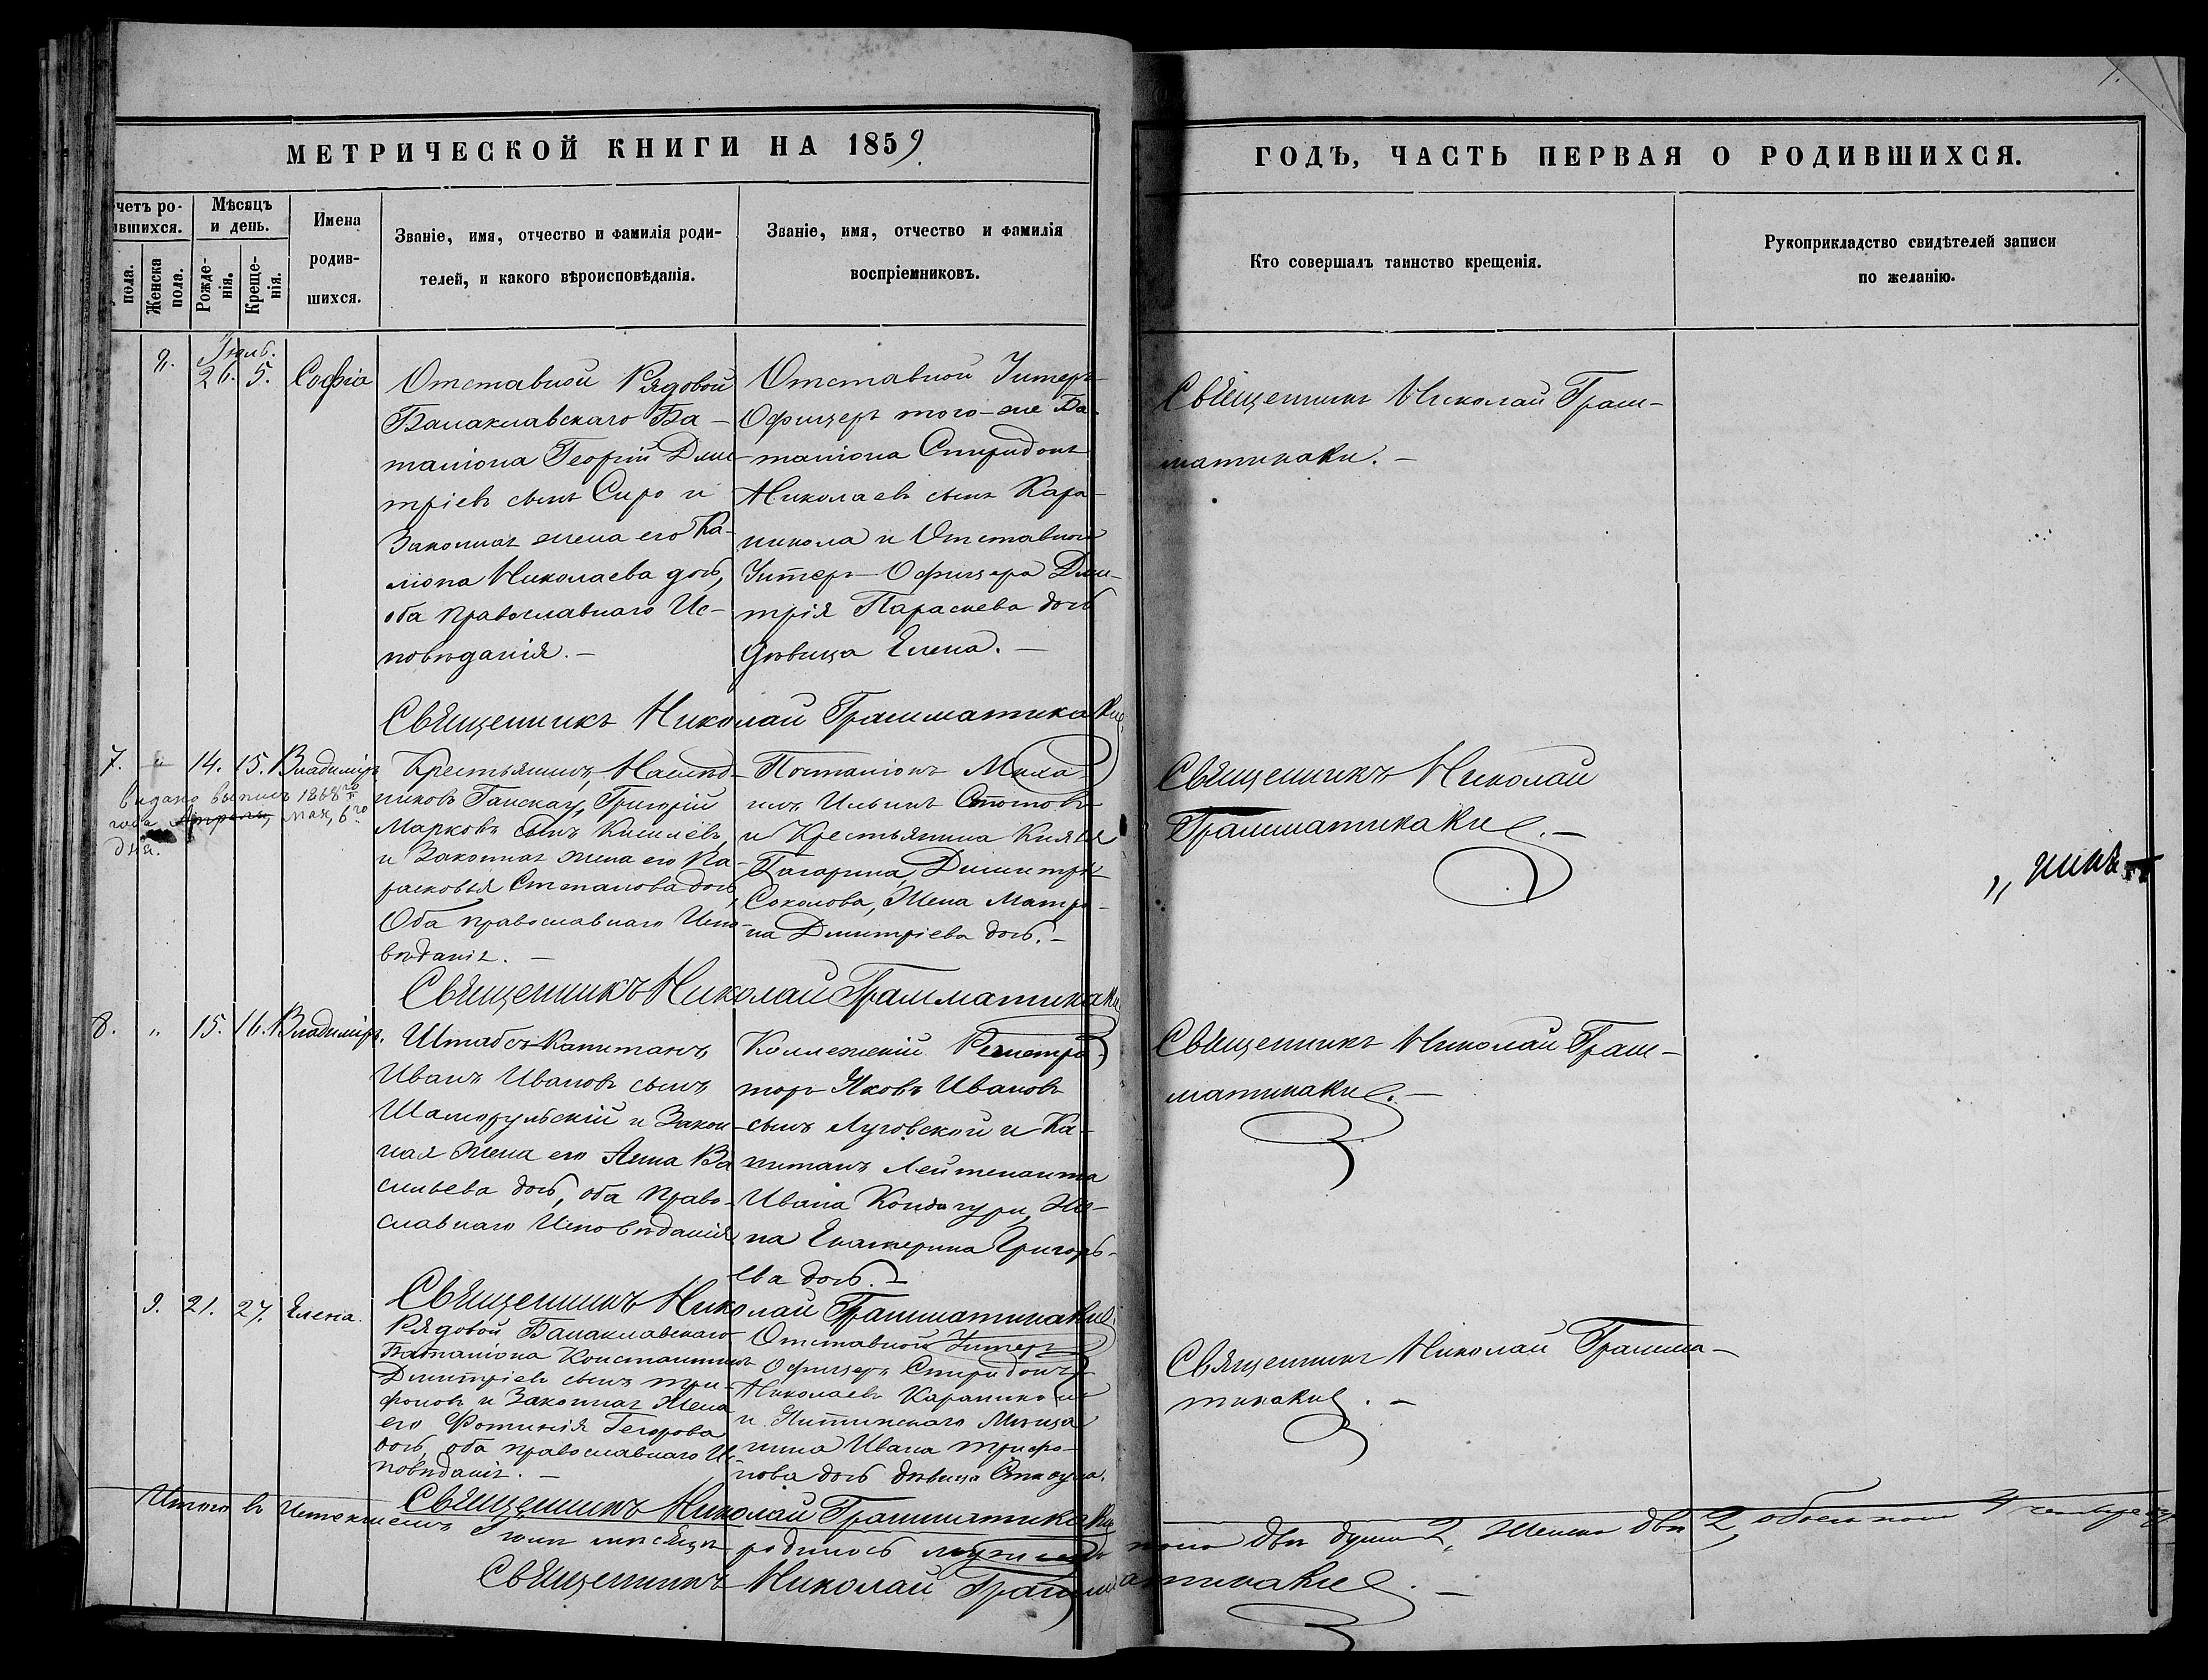 МЕТРИЧЕСКОЙ КНИГИ НА 1859
ГОДЪ, ЧАСТЬ ПЕРВАЯ О РОДИВШИХСЯ.
четъ ро-
ившихся.
пола.
Женска
пола.
Мѣсяцъ
и день.
Рожде-
нія.
Креще-
нія.
Имена
родив-
шихся.
Званіе, имя, отчество и фамилія роди-
телей, и какого вѣроисповѣданія.
Званіе, имя, отчество и фамилія
воспріемниковъ.
Кто совершалъ таинство крещенія.
Рукоприкладство свидѣтелей записи
по желанію.
8. Іюль. 26. 5. Софіа
Отставной Рядовой
Балаклавскаго Ба-
таліона Георгій Дми-
тріевъ сынъ Сиро и
Законная жена его Ка-
ліопа Николаева дочь,
оба православнаго Ис-
повѣданія. —
Отставной Унтеръ-
Офицеръ того-же Ба-
таліона Спиридонъ
Николаевъ сынъ Кара-
никола и Отставнаго
Унтеръ-Офицера Дми-
трія Параскева дочь
дѣвица Елена. —
Священникъ Николай Грам-
матикаки. —
Священникъ Николай Грамматикаки
7. „ 14. 15. Владиміръ
выдано выпись 1868
года Апрѣля, мая, 6го
дня.
Крестьянинъ,
Григорій
Марковъ сынъ Киселевъ,
и Законная жена его Па-
расковья Степанова дочь,
Оба православнаго Испо-
вѣданія. —
Миха-
илъ Ильинъ
и Крестьянина Князя
Гагарина, Димитрія
Соколова, Жена Матро-
на Дмитріева дочь. —
Священникъ Николай
Грамматикаки. —
Священникъ Николай Грамматикаки
8. „ 15. 16. Владиміръ.
Штабсъ-Капитанъ
Иванъ Ивановъ сынъ
и Закон-
ная жена его Анна Ва-
сильева дочь, оба право-
славнаго Исповѣданія
Коллежскій Регистра-
торъ Яковъ Ивановъ
сынъ Луговской и Ка-
питанъ Лейтенанта
Ивана Кондогури, Же-
на Екатерина Григорь-
ева дочь. —
Священникъ Николай Грам-
матикаки. —
Священникъ Николай Грамматикаки.
9. 21. 27. Елена.
Рядовой Балаклавскаго
Баталіона Константинъ
Дмитріевъ сынъ Три-
фоновъ и Законная Жена
его Фотинія Георгова
дочь, оба православнаго Ис-
повѣданія. —
Отставной Унтеръ
Офицеръ Спиридонъ
Николаевъ Караникола
и Мѣща-
нина Ивана Трифо-
нова дочь дѣвица
Священникъ Николай Грамма-
тикаки. —
Священникъ Николай Грамматикаки
Итого въ Истекшемъ Іюлѣ мѣсяцѣ родилось мужеска пола двѣ души 2, Женска двѣ 2, обоего пола 4 четыре
Священникъ Николай Грамматикаки. —